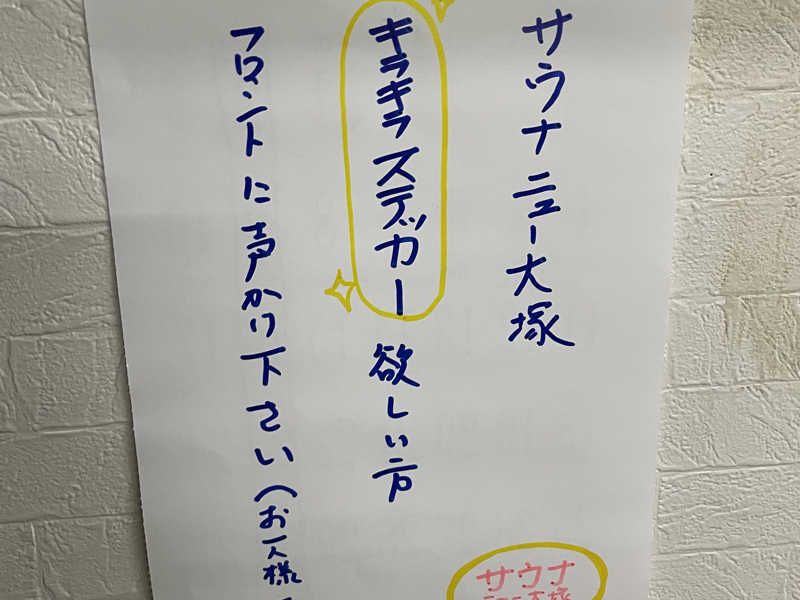 サウナニュー大塚
キラキラステッカー欲しい方
フロントに声かけ下さい(お一人様
サウナ